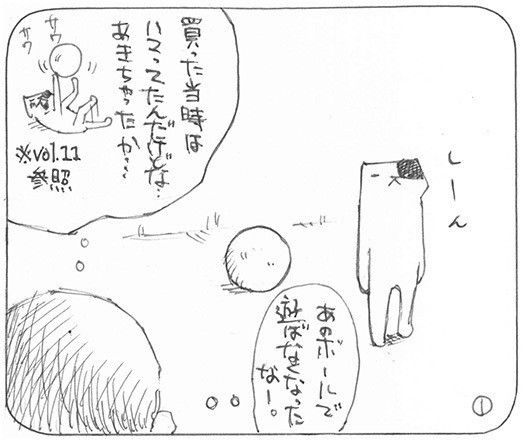 しーん
買った当時は
ハマってたんだけどな…
あきちゃったか…
サワ
サワ
※vol.11
参照
あのボールで
遊ばなくなった
なー。
①